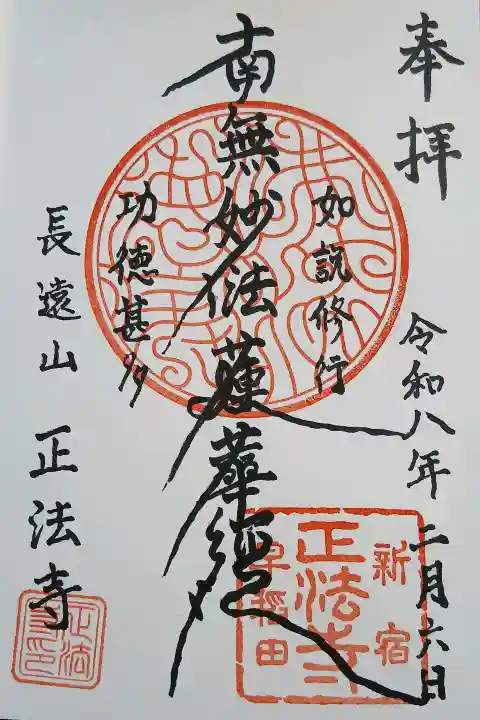 奉拝
令和八年二月六日
如説修行
南無妙法蓮華経
功徳甚多
長遠山 正法寺
新宿
正法寺
早稲田